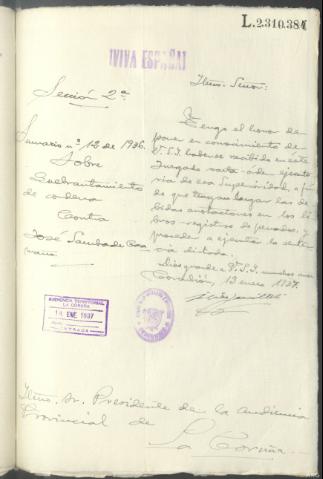 L.2.310.384
¡VIVA ESPAÑA!
Sección 2ª
Iltmo. Señor:
Sumario nº 12 de 1936.
Sobre
Quebrantamiento
de condena
Contra
José Sambade Caa-
maño
Tengo el honor de
poner en conocimiento de
V.S.I. haberse recibido en este
Juzgado carta-orden ejecuto-
ria de esa Superioridad, a fin
de que tengan lugar las de-
bidas anotaciones en los li-
bros registros de penados, y
proceder a ejecutar la senten-
cia dictada.
Dios guarde a V.S.I. muchos años
Corcubión, 12 enero 1937.
AUDIENCIA TERRITORIAL
LA CORUÑA
14 ENE. 1937
ENTRADA
Iltmo. Sr. Presidente de la Audiencia
Provincial de
La Coruña.